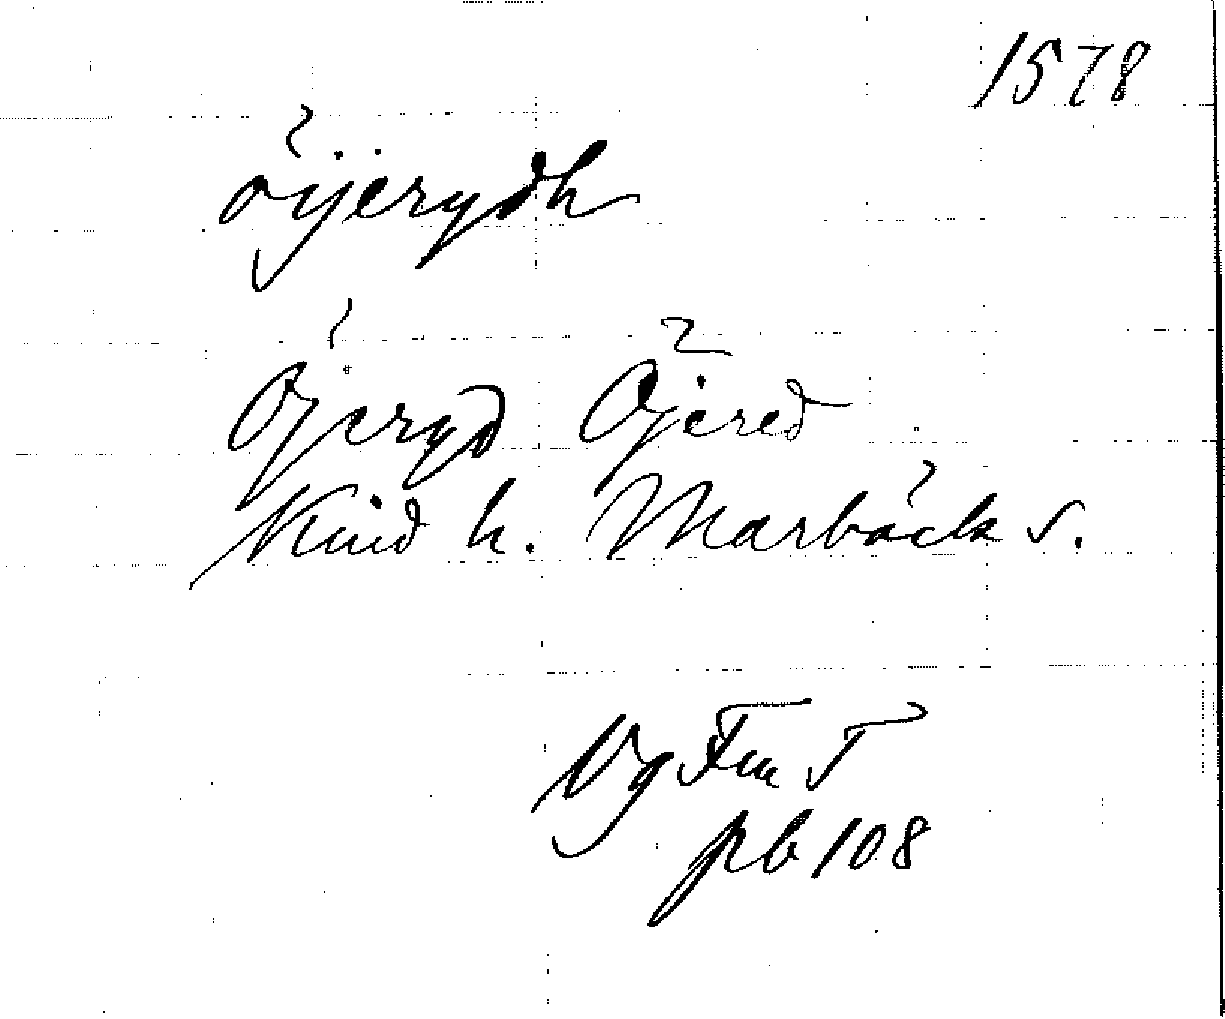 1578
öijerydh
Öjeryd Öjered
Kind h. Marbäck s.
Vg Fm T
pb 108